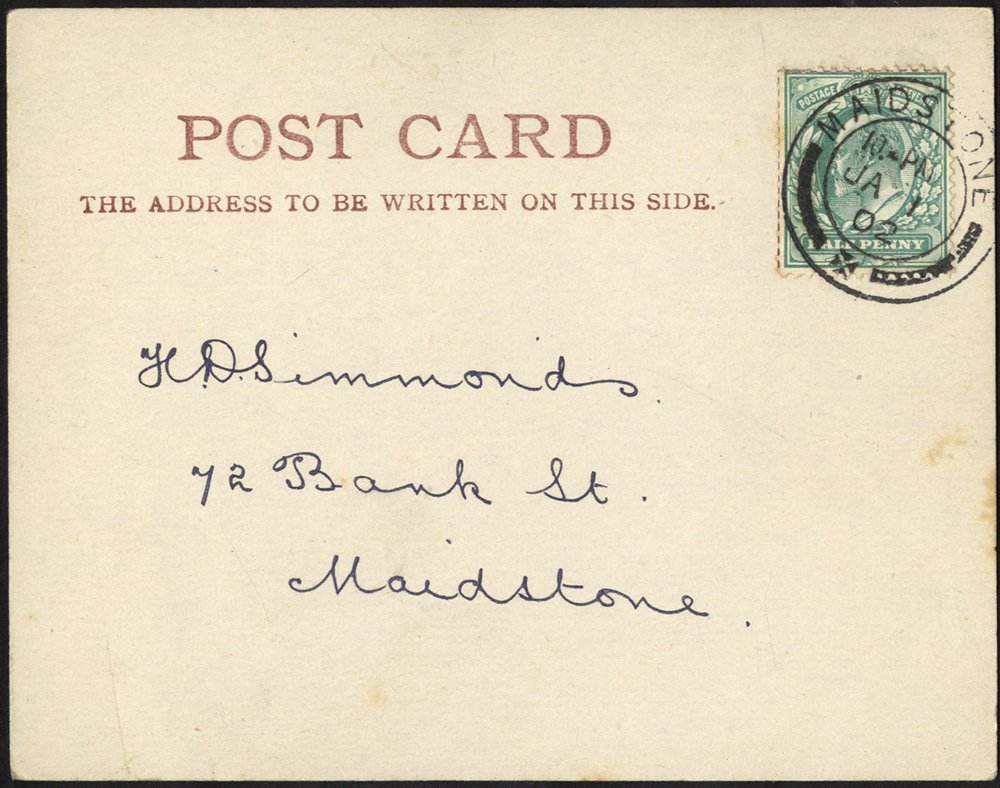 POST CARD
THE ADDRESS TO BE WRITTEN ON THIS SIDE.
POSTAGE
MAIDSTONE
10-PM
JA 1
02
HALF PENNY
H.D. Simmonds.
72 Bank St.
Maidstone.